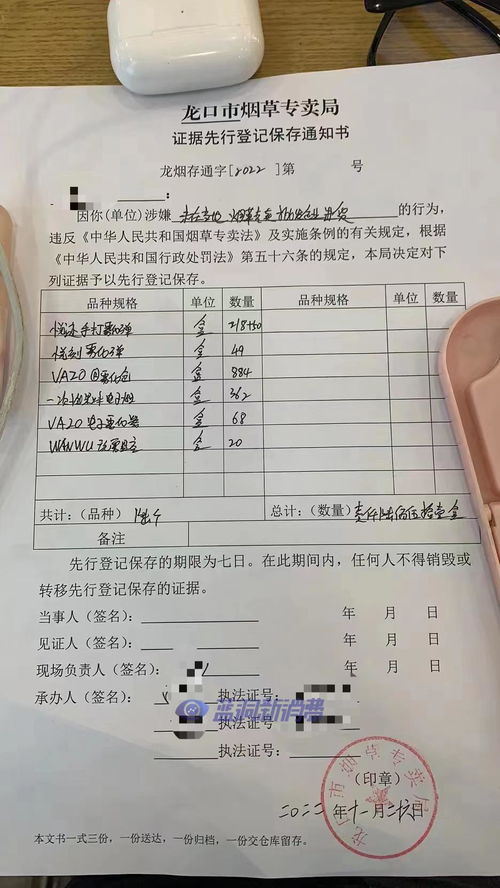 龙口市烟草专卖局
证据先行登记保存通知书
龙烟存通字[2022]第 号
:
因你(单位)涉嫌 的行为,
违反《中华人民共和国烟草专卖法》及实施条例的有关规定,根据
《中华人民共和国行政处罚法》第五十六条的规定,本局决定对下
列证据予以先行登记保存。
品种规格 单位 数量 品种规格 单位 数量
盒 218+50
悦刻雾化弹 盒 49
VAZO 盒 884
一次性 电子烟 盒 362
VAZO电子雾化器 盒 68
WANWU 盒 20
共计:(品种) 总计:(数量)
备注
先行登记保存的期限为七日。在此期间内,任何人不得销毁或
转移先行登记保存的证据。
当事人(签名): 年 月 日
见证人(签名): 年 月 日
现场负责人(签名): 年 月 日
承办人(签名): 执法证号:
蓝洞新消费
执法证号:
执法证号:
(印章)
二〇二二年十一月二六日
龙口市烟草专卖局
本文书一式三份,一份送达,一份归档,一份交仓库留存。